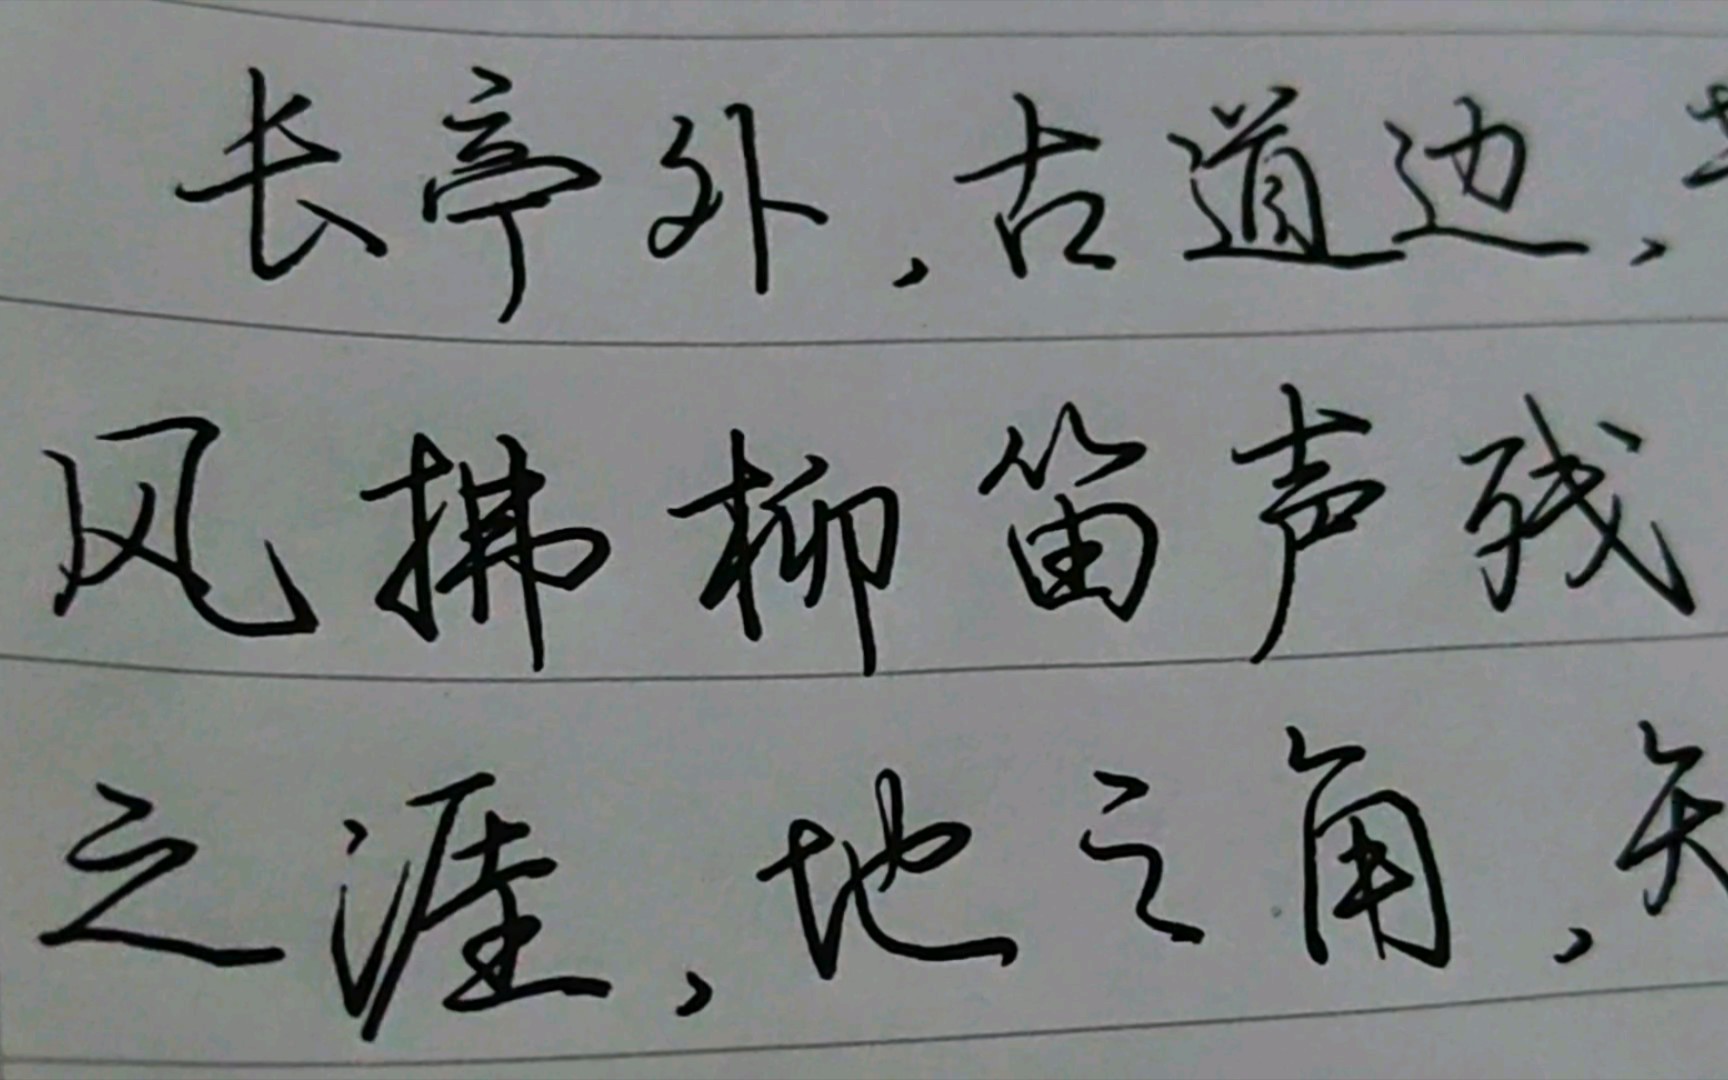 长亭外,古道边,
风拂柳笛声残
之涯,地之角,